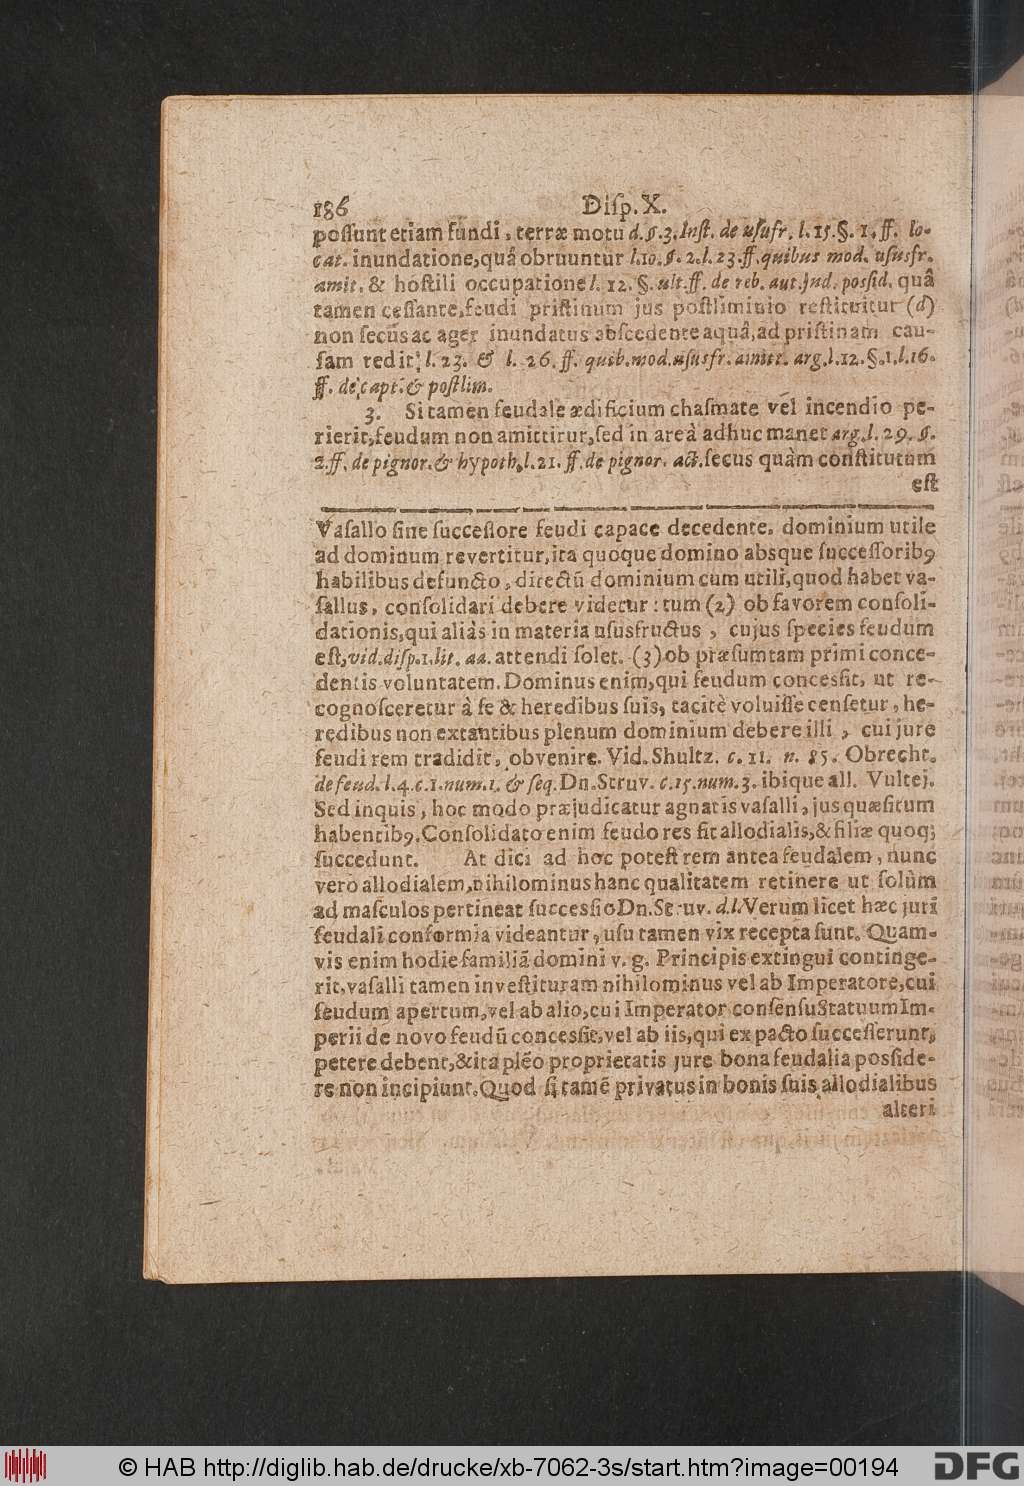 186 Diſp. X.
poſſunt etiam fundi, terræ motu d. §. 3. Inſt. de uſufr. l. 15. §. 1. ff. lo-
cat. inundatione, quâ obruuntur l. 10. §. 2. l. 23. ff. quibus mod. uſusfr.
amit. & hoſtili occupatione l. 12. §. ult. ff. de reb. aut. jud. poſſid. quâ
tamen ceſſante, feudi priſtinum jus poſtliminio reſtituitur (d)
non ſecus ac ager inundatus abſcedente aquâ, ad priſtinam cau-
ſam redit: l. 23. & l. 26. ff. quib. mod. uſusfr. amitt. arg. l. 12. §. 1. l. 16.
ff. de capt. & poſtlim.
3. Si tamen feudale ædificium chaſmate vel incendio pe-
rierit, feudum non amittitur, ſed in areâ adhuc manet arg. l. 29. §.
2. ff. de pignor. & hypoth. l. 21. ff. de pignor. act. ſecus quàm conſtitutum
eſt
Vaſallo ſine ſucceſſore feudi capace decedente, dominium utile
ad dominum revertitur, ita quoque domino absque ſucceſſorib9
habilibus defuncto, directū dominium cum utili, quod habet va-
ſallus, conſolidari debere videtur: tum (2) ob favorem conſoli-
dationis, qui aliàs in materia uſusfructus, cujus ſpecies feudum
eſt, vid. diſp. 1. lit. aa. attendi ſolet. (3) ob præſumtam primi conce-
dentis voluntatem. Dominus enim, qui feudum concesſit, ut re-
cognoſceretur à ſe & heredibus ſuis, tacitè voluiſſe cenſetur, he-
redibus non extantibus plenum dominium debere illi, cui jure
feudi rem tradidit, obvenire. Vid. Shultz. c. 11. n. 85. Obrecht.
de feud. l. 4. c. 1. num. 1. & ſeq. Dn. Struv. c. 15. num. 3. ibique all. Vultej.
Sed inquis, hoc modo præjudicatur agnatis vaſalli, jus quæſitum
habentib9. Conſolidato enim feudo res fit allodialis, & filiæ quoq;
ſuccedunt. At dici ad hoc poteſt rem antea feudalem, nunc
vero allodialem, nihilominus hanc qualitatem retinere ut ſolùm
ad maſculos pertineat ſucceſſio Dn. Struv. d. l. Verum licet hæc juri
feudali conformia videantur, uſu tamen vix recepta ſunt. Quam-
vis enim hodie familiã domini v. g. Principis extingui continge-
rit, vaſalli tamen inveſtituram nihilominus vel ab Imperatore, cui
feudum apertum, vel ab alio, cui Imperator conſenſu Statuum Im-
perii de novo feudū concesſit, vel ab iis, qui ex pacto ſucceſſerunt,
petere debent, & ita plēo proprietatis jure bona feudalia posſide-
re non incipiunt. Quod ſi tamē privatus in bonis ſuis allodialibus
alteri
© HAB http://diglib.hab.de/drucke/xb-7062-3s/start.htm?image=00194
DFG